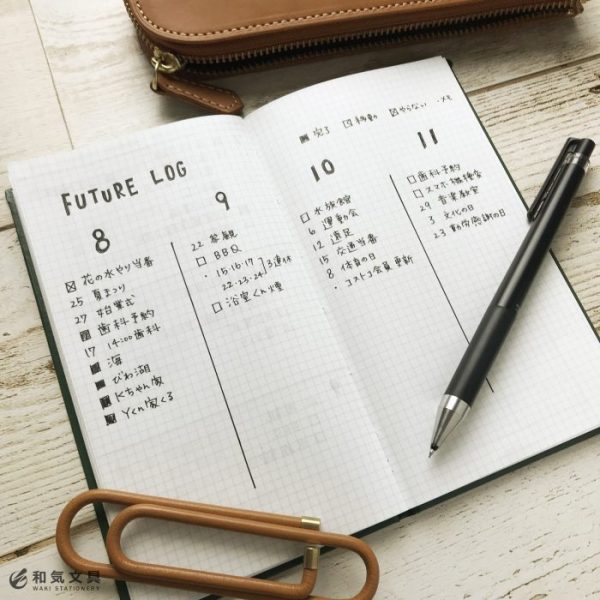 FUTURE LOG
8
花の水やり当番
25 夏まつり
27 始業式
歯科予約
17 14:00歯科
海
びわ湖
Kちゃん家
Yくん家くる
9
22 参観
BBQ
・15・16・17
22・23・24
3連休
浴室くん煙
完了 移動 やらない ・メモ
10
水族館
6 運動会
12 遠足
15 交通当番
8 体育の日
・コストコ会員更新
11
歯科予約
スマホ機種変
29 音楽教室
3 文化の日
23 勤労感謝の日
和気文具
WAKI STATIONERY